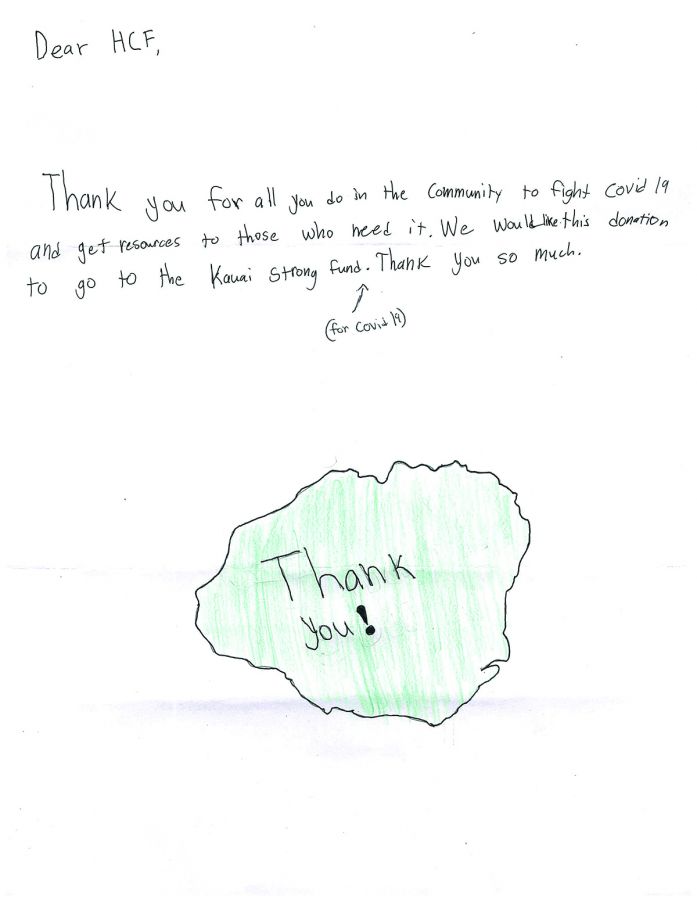 Dear HCF,
Thank you for all you do in the Community to fight Covid 19
and get resources to those who need it. We would like this donation
to go to the Kauai Strong fund. Thank you so much.
(for Covid 19)
Thank
you!